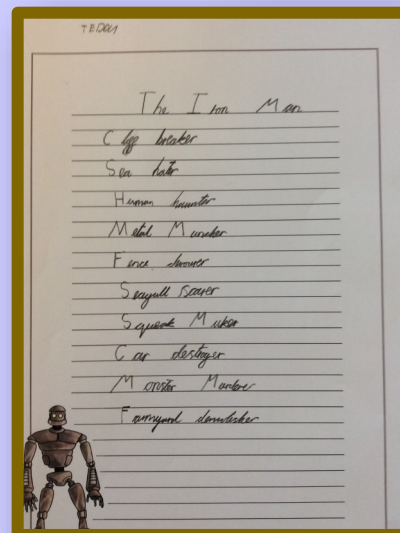 TEDDY
The Iron Man
Cliff breaker
Sea hater
Human haunter
Metal Muncher
Fence
Seagull scarer
Squeak Maker
Car destroyer
Monster
Farmyard demolisher